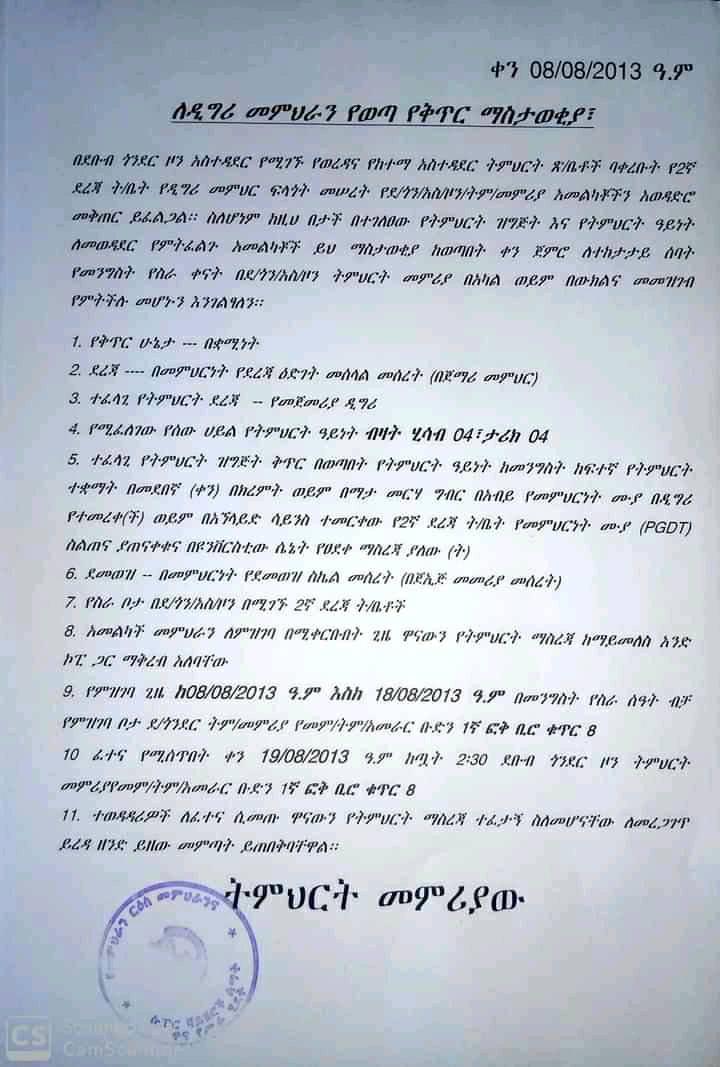 ቀን 08/08/2013 ዓ.ም
ለዲግሪ መምህራን የወጣ የቅጥር ማስታወቂያ፣
በደቡብ ጎንደር ዞን አስተዳደር የሚገኙ የወረዳና የከተማ አስተዳደር ትምህርት ጽ/ቤቶች ባቀረቡት የ2ኛ
ደረጃ ት/ቤት የዲግሪ መምህር ፍላጎት መሠረት የደ/ጎን/አስ/ዞን/ትም/መምሪያ አመልካቾችን አወዳድሮ
መቅጠር ይፈልጋል። ስለሆነም ከዚህ በታች በተገለፀው የትምህርት ዝግጅት እና የትምህርት ዓይነት
ለመወዳደር የምትፈልጉ አመልካቾች ይህ ማስታወቂያ ከወጣበት ቀን ጀምሮ ለተከታታይ ሰባት
የመንግስት የስራ ቀናት በደ/ጎን/አስ/ዞን ትምህርት መምሪያ በአካል ወይም በውክልና መመዝገብ
የምትችሉ መሆኑን እንገልፃለን።
1. የቅጥር ሁኔታ --- በቋሚነት
2. ደረጃ ---- በመምህርነት የደረጃ ዕድገት መሰላል መሰረት (በጀማሪ መምህር)
3. ተፈላጊ የትምህርት ደረጃ -- የመጀመሪያ ዲግሪ
4. የሚፈለገው የሰው ሀይል የትምህርት ዓይነት ብዛት ሂሳብ 04፣ታሪክ 04
5. ተፈላጊ የትምህርት ዝግጅት ቅጥር በወጣበት የትምህርት ዓይነት ከመንግስት ከፍተኛ የትምህርት
ተቋማት በመደበኛ (ቀን) በክረምት ወይም በማታ መርሃ ግብር በአብይ የመምህርነት ሙያ በዲግሪ
የተመረቀ(ች) ወይም በአፕላይድ ሳይንስ ተመርቀው የ2ኛ ደረጃ ት/ቤት የመምህርነት ሙያ (PGDT)
ስልጠና ያጠናቀቁና በዩንቨርስቲው ሴኔት የፀደቀ ማስረጃ ያለው (ት)
6. ደመወዝ -- በመምህርነት የደመወዝ ስኬል መሰረት (በጀኢጅ መመሪያ መሰረት)
7. የስራ ቦታ በደ/ጎን/አስ/ዞን በሚገኙ 2ኛ ደረጃ ት/ቤቶች
8. አመልካች መምህራን ለምዝገባ በሚቀርቡበት ጊዜ ዋናውን የትምህርት ማስረጃ ከማይመለስ አንድ
ኮፒ ጋር ማቅረብ አለባቸው
9. የምዝገባ ጊዜ ከ08/08/2013 ዓ.ም እስከ 18/08/2013 ዓ.ም በመንግስት የስራ ሰዓት ብቻ
የምዝገባ ቦታ ደ/ጎንደር ትም/መምሪያ የመም/ትም/አመራር ቡድን 1ኛ ፎቅ ቢሮ ቁጥር 8
10 ፈተና የሚሰጥበት ቀን 19/08/2013 ዓ.ም ከጧት 2:30 ደቡብ ጎንደር ዞን ትምህርት
መምሪያየመም/ትም/አመራር ቡድን 1ኛ ፎቅ ቢሮ ቁጥር 8
11. ተወዳዳሪዎች ለፈተና ሲመጡ ዋናውን የትምህርት ማስረጃ ተፈታኝ ስለመሆናቸው ለመረጋገጥ
ይረዳ ዘንድ ይዘው መምጣት ይጠበቅባቸዋል።
ትምህርት መምሪያው
CS
CamScanner